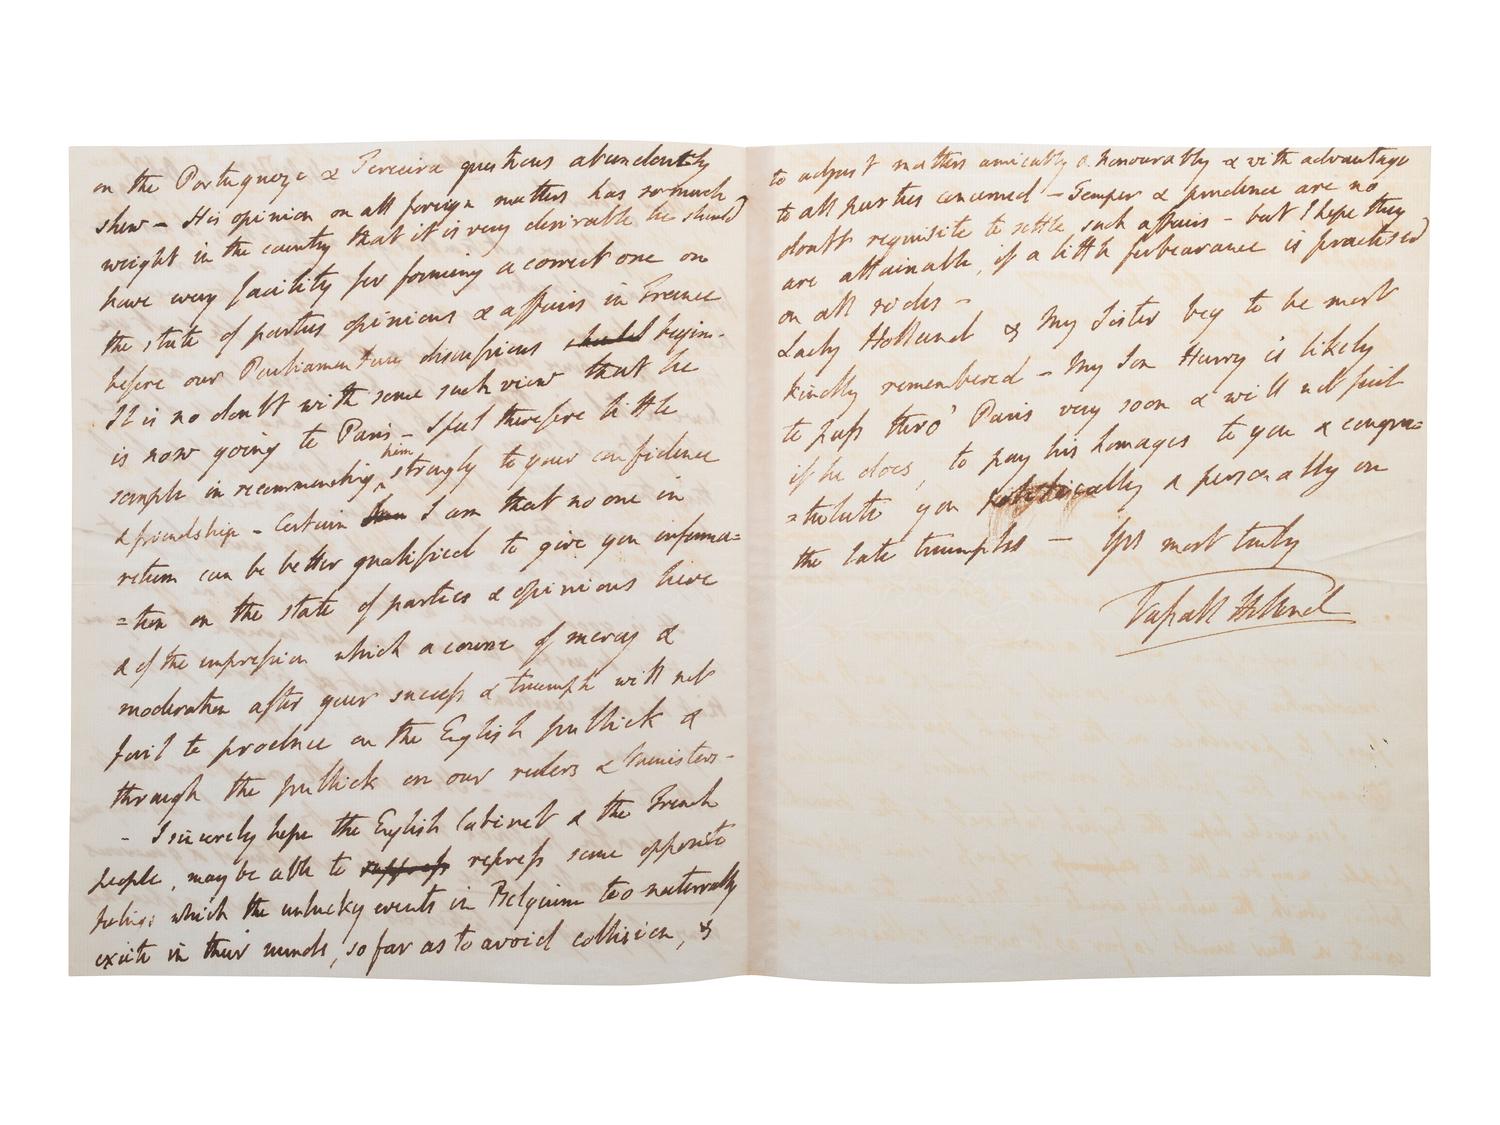 on the Portugueze & Terceira questions abundantly
shew – His opinion on all foreign matters has so much
weight in the country that it is very desirable he should
have every facility for forming a correct one on
the state of parties opinions & affairs in France
before our Parliamentary discussions should begin.
It is no doubt with some such view that he
is now going to Paris – I feel therefore little
scruple in recommending him strongly to your confidence
& friendship – Certain I am that no one in
return can be better qualified to give you informa=
=tion on the state of parties & opinions here
& of the impression which a course of mercy &
moderation after your success & triumph will not
fail to produce on the English publick &
through the publick on our rulers & Ministers –
– I sincerely hope the English Cabinet & the French
people, may be able to suppress repress some opposite
feelings which the unlucky events in Belgium too naturally
excite in their minds, so far as to avoid collision, &
to adjust matters amicably & honourably & with advantage
to all parties concerned – Temper & prudence are no
doubt requisite to settle such affairs – but I hope they
are attainable, if a little forbearance is practised
on all sides –
Lady Holland & My Sister beg to be most
kindly remembered – My Son Henry is likely
to pass thro' Paris very soon & will not fail
if he does, to pay his homages to you & congra=
=tulate you politically & personally on
the late triumphs – Yrs most truly
Vassall Holland